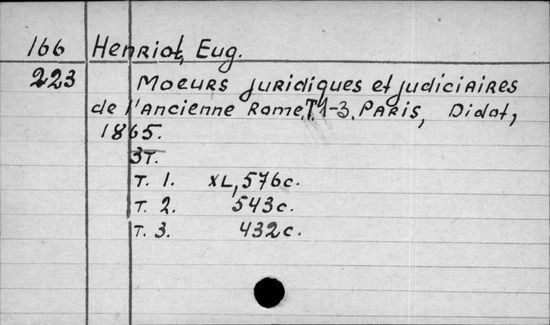 166 Henriot, Eug.
223 Moeurs juridiques et judiciaires
de l'ancienne Rome. T1-3. Paris, Didot,
1865.
3T.
T. 1. XL, 576c.
T. 2. 543c.
T. 3. 432c.